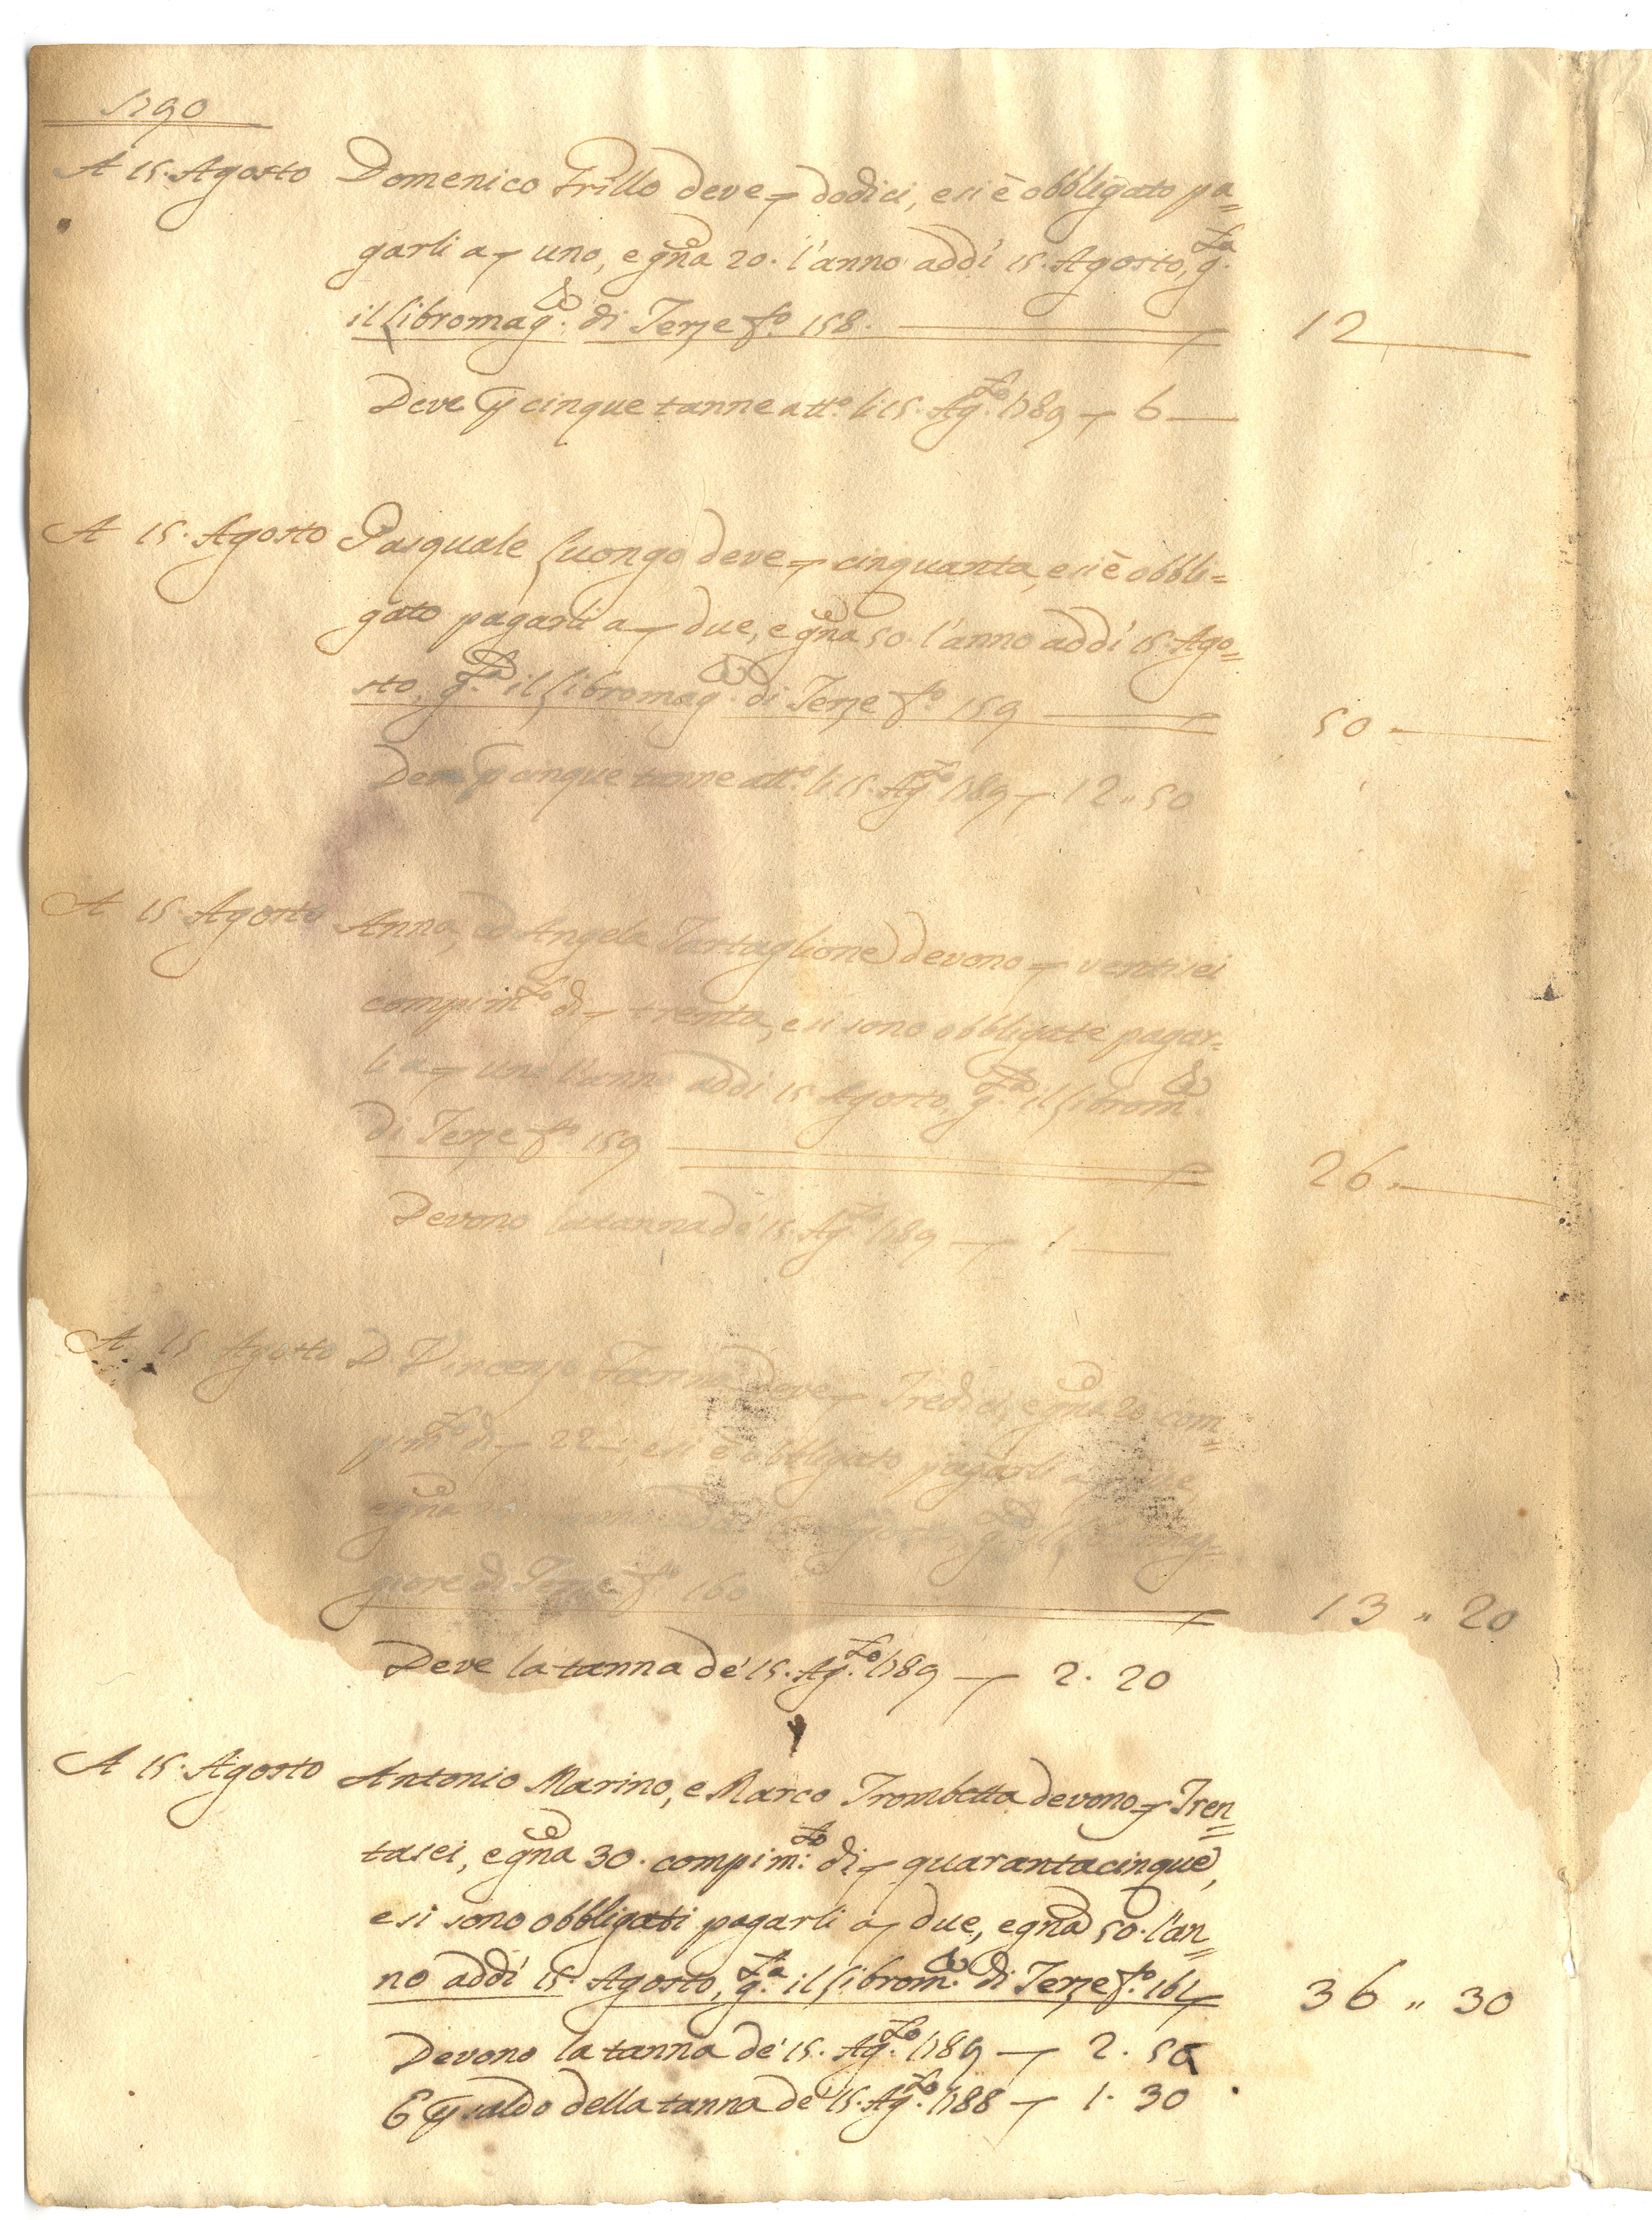 1790
A 15. Agosto Domenico Trillo deve dodici, e si è obbligato pa=
garli a uno, e grna 20. l'anno addì 15. Agosto, gta
il Libro magre. di Terze fo. 158. 12
Deve p cinque tanne atto. li 15. Agto. 1789 6
A 15. Agosto Pasquale Luongo deve cinquanta, e si è obbli=
gato pagarli a due, e grna 50. l'anno addì 15. Ago=
sto, gta il Libro magre. di Terze fo. 159 50
Deve p cinque tanne atto. li 15. Agto. 1789 12 " 50
A 15. Agosto Anna, ed Angela Tartaglione devono ventisei
compimto di trenta, e si sono obbligate pagar=
li a uno l'anno addì 15 Agosto, gta il Libro m
di Terze fo. 159 26
Devono la tanna de' 15. Agto. 1789 1
A 15 Agosto D. Vincenzo deve Tredici, e grna 20 com=
pimto di 22, e si è obbligato pagarli a
e grna
giore di Terze fo. 160 13 " 20
Deve la tanna de' 15. Agto. 1789 2. 20
A 15. Agosto Antonio Marino, e Marco Trombetta devono Tren=
tasei, e grna 30. compimto: di quarantacinque,
e si sono obbligati pagarli a due, e grna 50. l'an=
no addì 15. Agosto, gta il Libro m. di Terze fo. 161 36 " 30
Devono la tanna de' 15. Agto. 1789 2. 50
E p saldo della tanna de' 15. Agto. 1788 1. 30